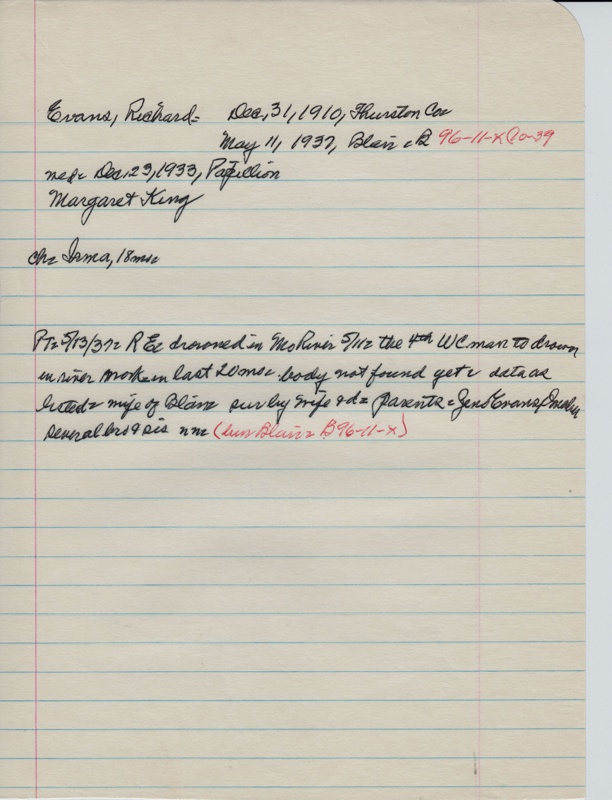 Evans, Richard= Dec, 31, 1910, Thurston Co=
May 11, 1937, Blair = B 96-11-X
med= Dec. 23, 1933, Papillion
Margaret King
ch= Irma, 18mo=
PT= 5/13/37= R E= drowned in Mo River 5/11= the 4th WC man to drown
in river work= in last 20mo= body not found yet= data as
listed= wife of Blair= sur by wife & d= parents= Jens Evans,
several bro & sis nm= (bur Blair= B96-11-X)